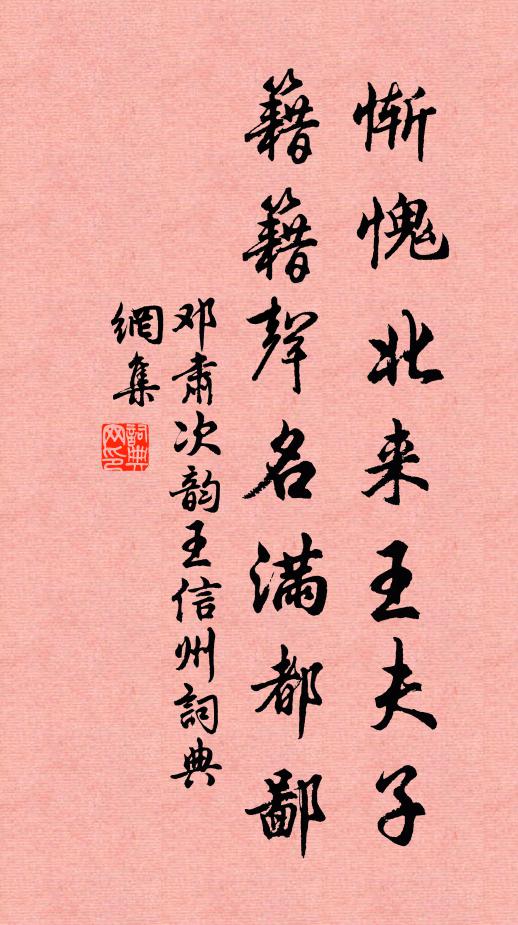 惭愧北来王夫子
籍籍聲名满都鄙
邓肃次韵王信州詞典
網集
詞典網印